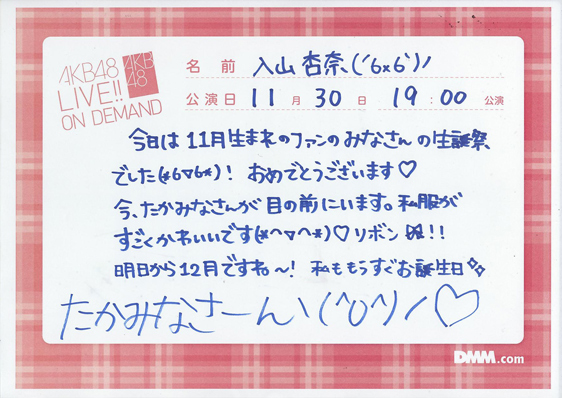 AKB48
LIVE!!
ON DEMAND
AKB
48
名前 入山杏奈、(´6x6`)ノ
公演日 11月30日 19:00公演
今日は11月生まれのファンのみなさんの生誕祭、
でした(*6▽6*)! おめでとうございます♡
今、たかみなさんが目の前にいます。私服が
すごくかわいいです(*^▽^*)♡リボン!!
明日から12月ですね〜! 私ももうすぐお誕生日
たかみなさーんヽ(^o^)ノ♡
DMM.com